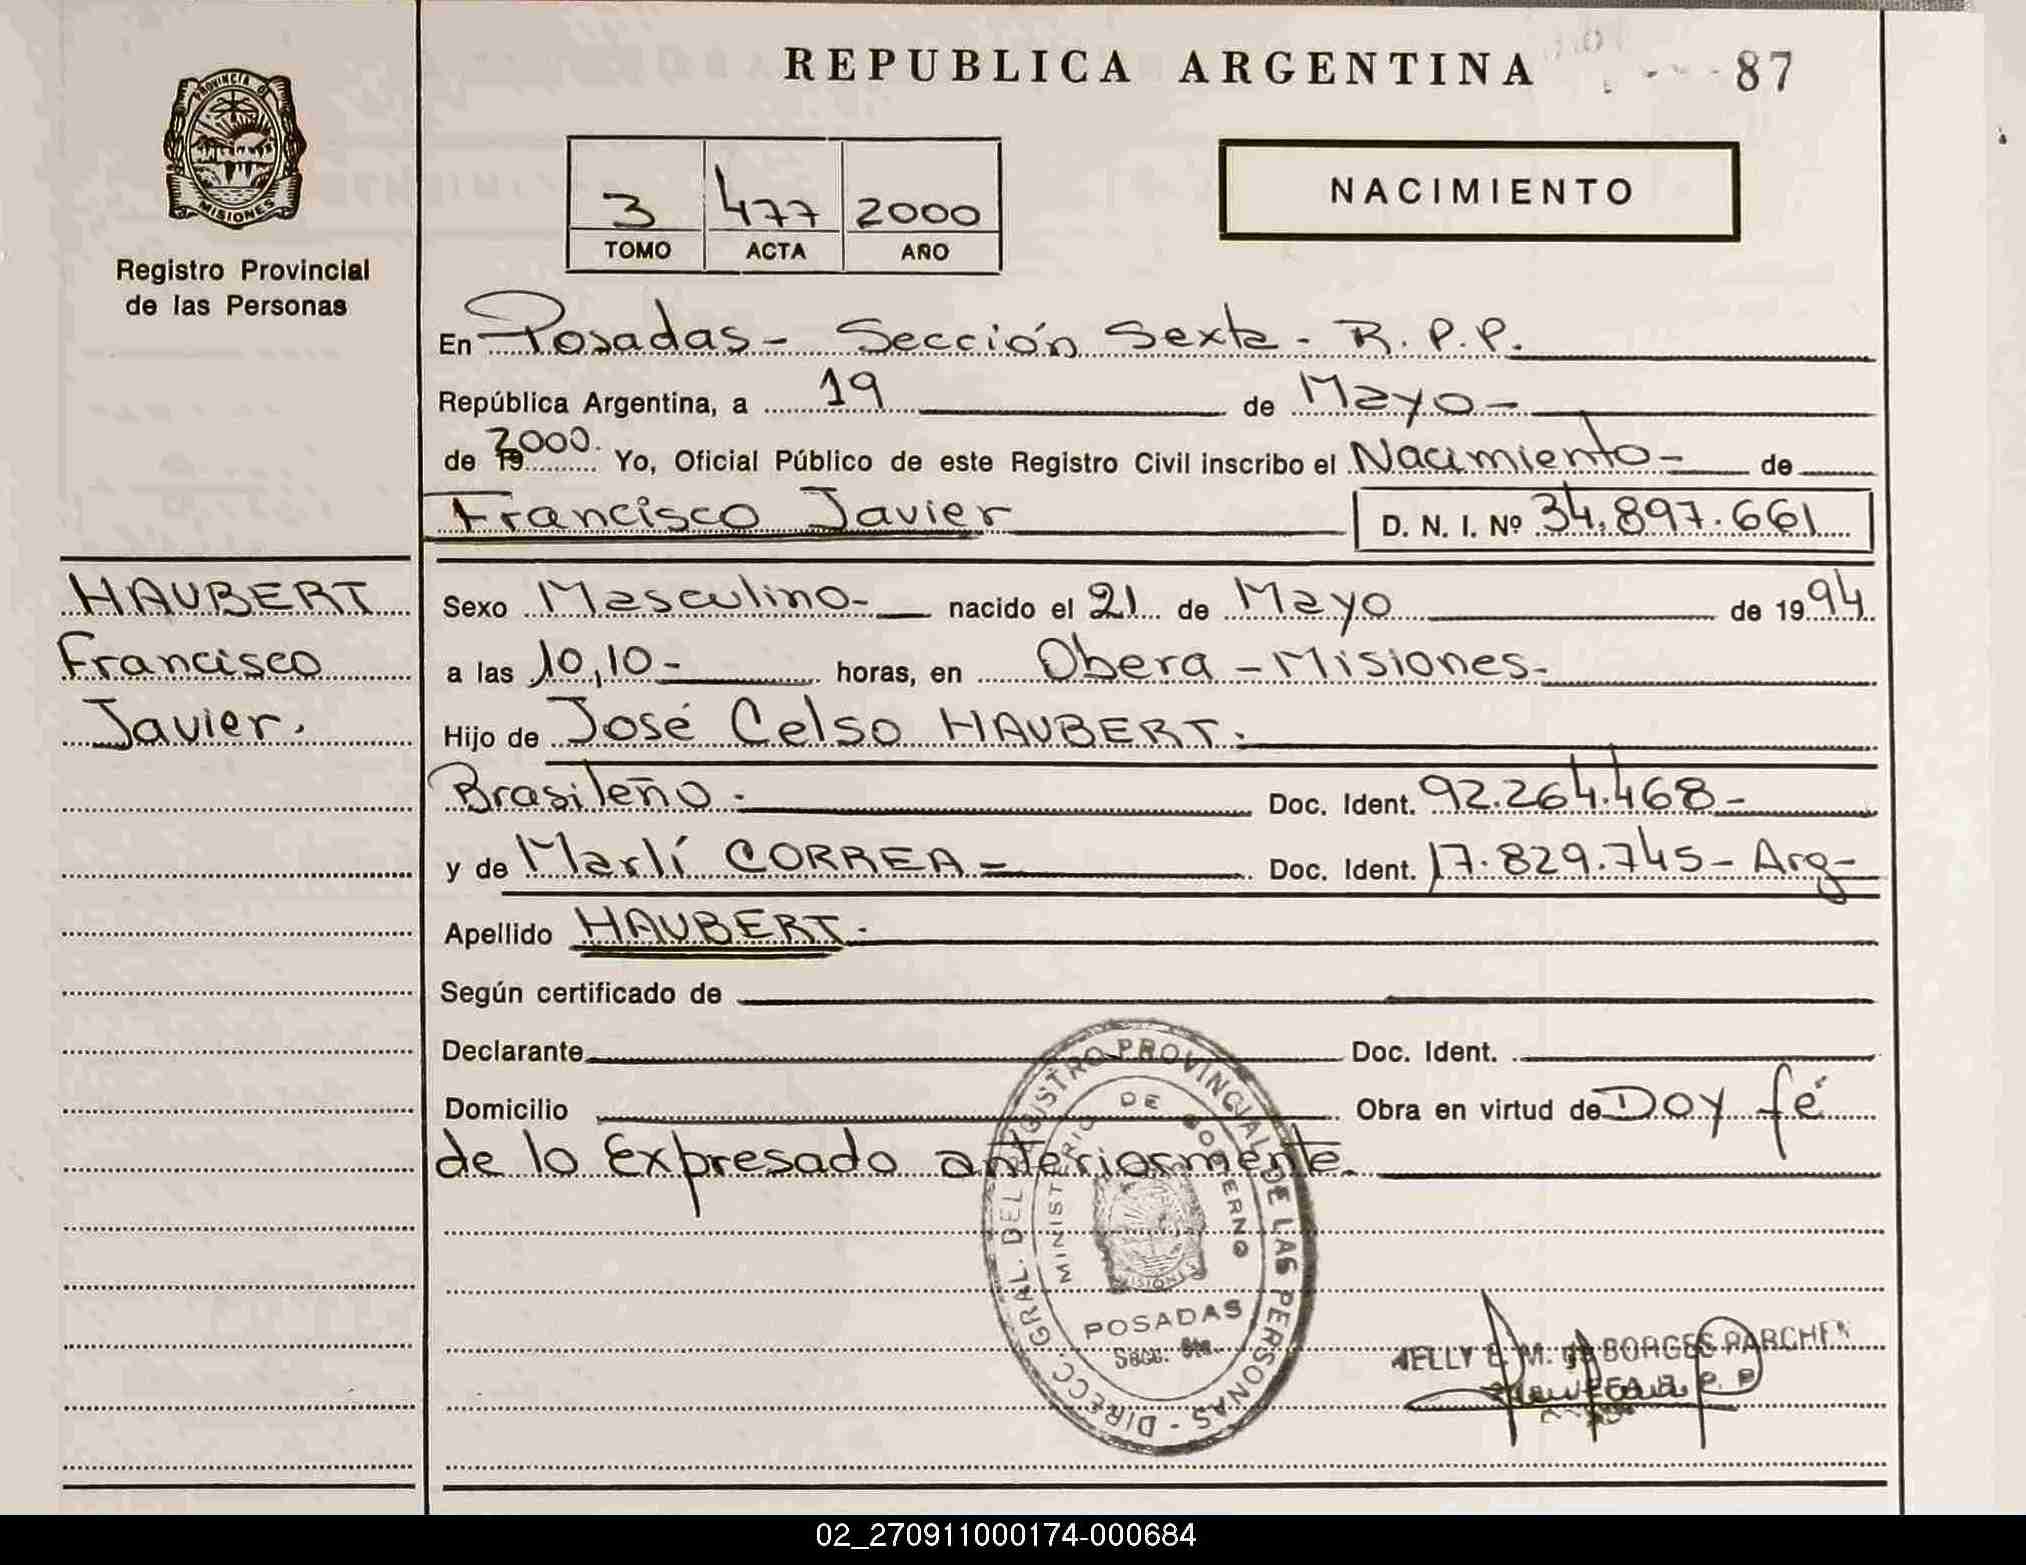 REPUBLICA ARGENTINA
87
PROVINCIA D
MISIONES
Registro Provincial
de las Personas
3 477 2000
TOMO ACTA AÑO
NACIMIENTO
En Posadas - Sección Sexta - R. P. P.
República Argentina, a 19 de Mayo -
de 2000. Yo, Oficial Público de este Registro Civil inscribo el Nacimiento - de
Francisco Javier D. N. I. Nº 34.897.661
HAUBERT
Francisco
Javier.
Sexo Masculino - nacido el 21 de Mayo de 1994
a las 10,10 - horas, en Obera - Misiones -
Hijo de José Celso HAUBERT.
Brasileño - Doc. Ident. 92.264.468 -
y de Marlí CORREA = Doc. Ident. 17.829.745 - Arg -
Apellido HAUBERT.
Según certificado de
Declarante Doc. Ident.
Domicilio Obra en virtud de Doy fé
de lo Expresado anteriormente.
DIRECC. GRAL. DEL REGISTRO PROVINCIAL DE LAS PERSONAS -
MINISTERIO DE GOBERNO
MISIONES
POSADAS
Secc. 6ta.
NELLY E. M. de BORGES
02_270911000174-000684